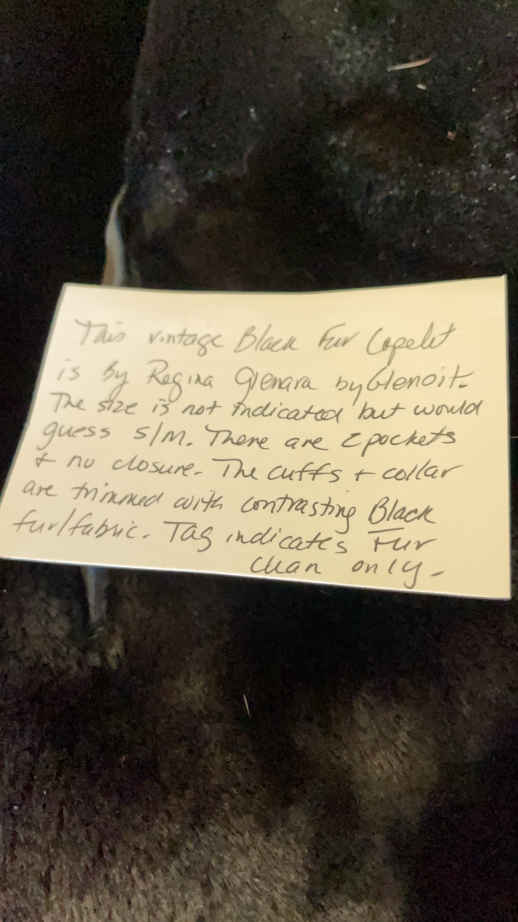 This vintage Black Fur Capelet
is by Regina Glenara by Glenoit.
The size is not indicated but would
guess S/M. There are 2 pockets
+ no closure. The cuffs + collar
are trimmed with contrasting Black
fur/fabric. Tag indicates Fur
clean only.